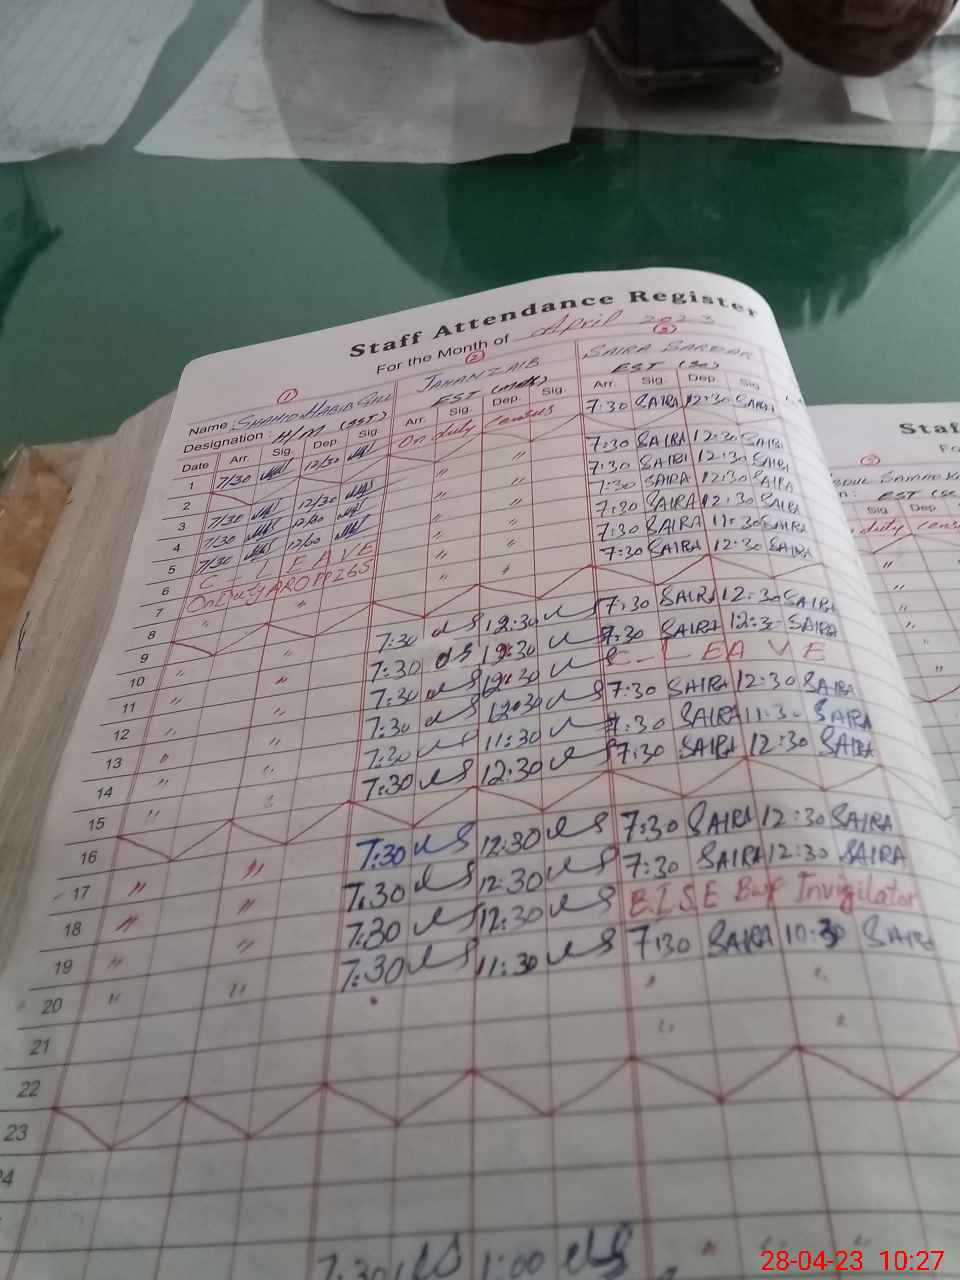 Staff Attendance Register
For the Month of April 2023
1 2 3
Name: SHAHID HABIB JAHANZAIB SAIRA SARDAR
Designation: H/M (SST) EST (SC)
Date Arr. Sig. Dep. Sig. Arr. Sig. Dep. Sig. Arr. Sig. Dep. Sig.
1 7/30 12/30 On duty census 7:30 SAIRA 12:30 SAIRA
2
3 7/30 12/30 " " 7:30 SAIRA 12:30 SAIRA
4 7/30 12/30 " " 7:30 SAIRA 12:30 SAIRA
5 7/30 " " 7:30 SAIRA 12:30 SAIRA
6 C - LEAVE " " 7:30 SAIRA 12:30 SAIRA
7 On Duty " " 7:30 SAIRA 11:30 SAIRA
8 " " " " 7:30 SAIRA 12:30 SAIRA
9
10 " " 7:30 12:30 7:30 SAIRA 12:30 SAIRA
11 " " 7:30 12:30 7:30 SAIRA 12:30 SAIRA
12 " " 7:30 12:30 C - LEAVE
13 " " 7:30 12:30 7:30 SAIRA 12:30 SAIRA
14 " " 7:30 11:30 7:30 SAIRA 11:30 SAIRA
15 " " 7:30 12:30 7:30 SAIRA 12:30 SAIRA
16
17 " " 7:30 12:30 7:30 SAIRA 12:30 SAIRA
18 " " 7:30 12:30 7:30 SAIRA 12:30 SAIRA
19 " " 7:30 12:30 B.I.S.E Bwp Invigilator
20 " " 7:30 11:30 7:30 SAIRA 10:30 SAIRA
21 " "
22 " "
23
7:30 1:00 " "
Staf
EST (SC
Sig. Dep.
duty
"
"
"
"
"
28-04-23 10:27